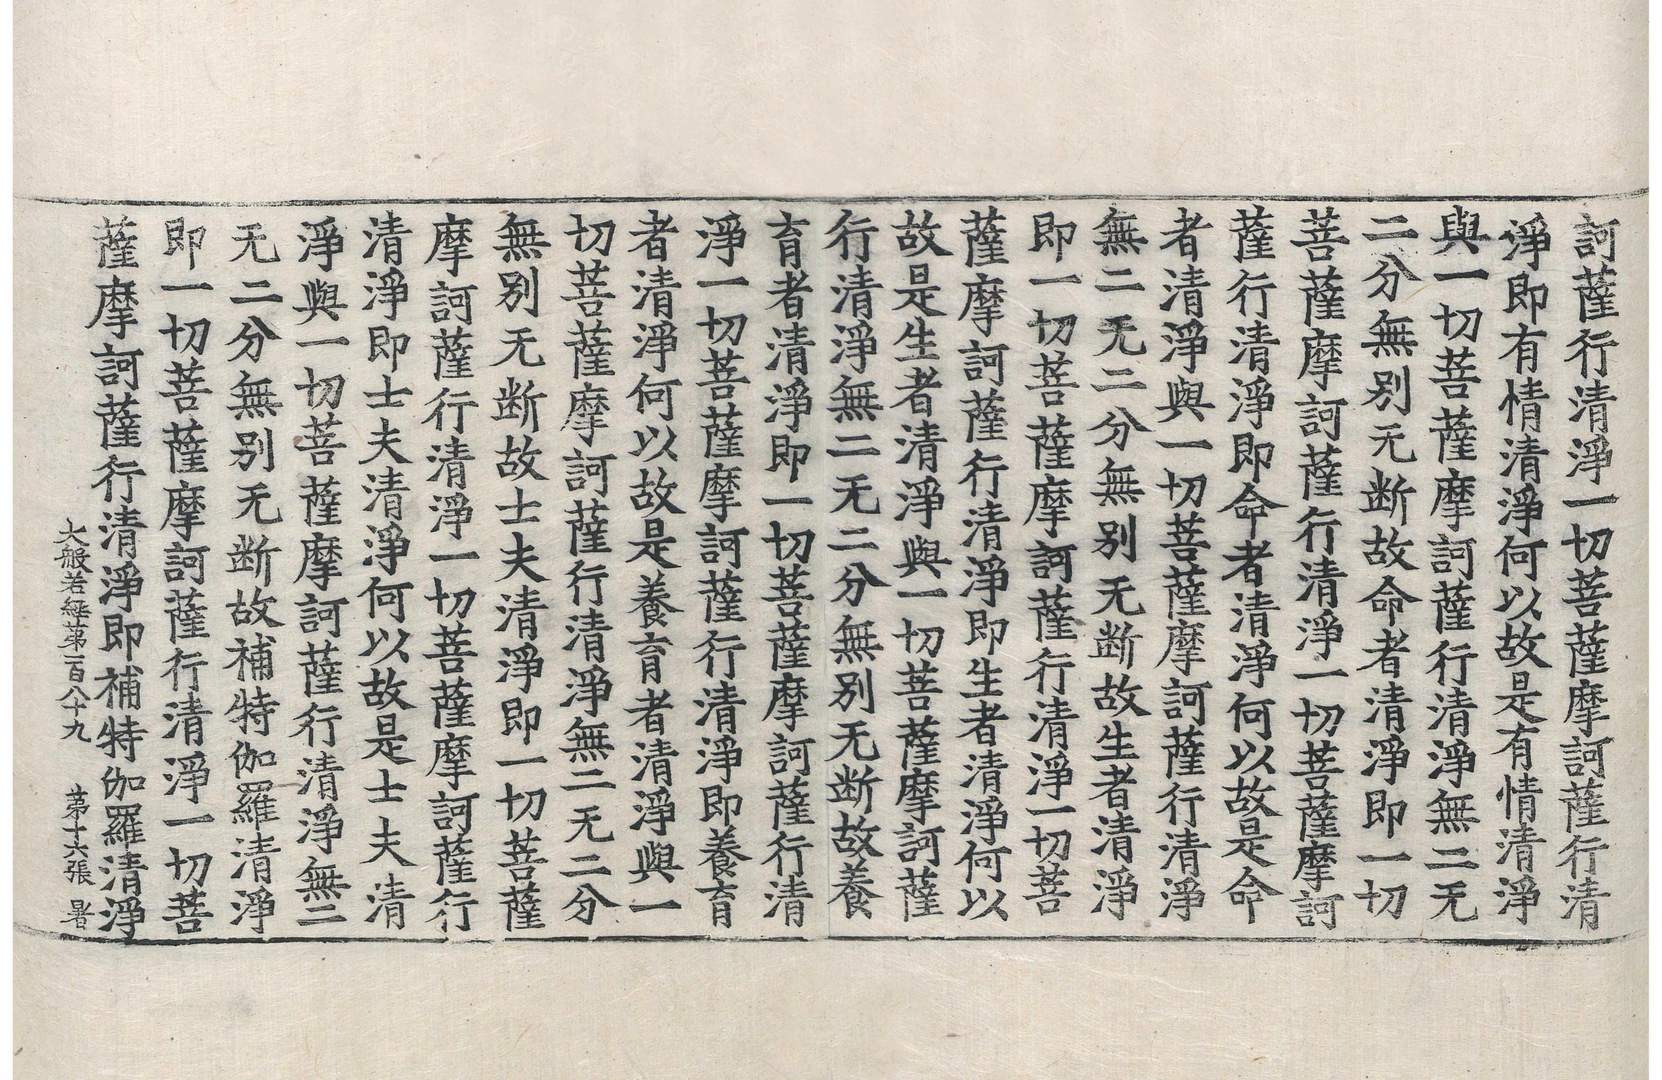 訶薩行清淨一切菩薩摩訶薩行清
淨即有情清淨何以故是有情清淨
與一切菩薩摩訶薩行清淨無二无
二分無別无断故命者清淨即一切
菩薩摩訶薩行清淨一切菩薩摩訶
薩行清淨即命者清淨何以故是命
者清淨與一切菩薩摩訶薩行清淨
無二无二分無別无断故生者清淨
即一切菩薩摩訶薩行清淨一切菩
薩摩訶薩行清淨即生者清淨何以
故是生者清淨與一切菩薩摩訶薩
行清淨無二无二分無別无断故養
育者清淨即一切菩薩摩訶薩行清
淨一切菩薩摩訶薩行清淨即養育
者清淨何以故是養育者清淨與一
切菩薩摩訶薩行清淨無二无二分
無別无断故士夫清淨即一切菩薩
摩訶薩行清淨一切菩薩摩訶薩行
清淨即士夫清淨何以故是士夫清
淨與一切菩薩摩訶薩行清淨無二
无二分無別无断故補特伽羅清淨
即一切菩薩摩訶薩行清淨一切菩
薩摩訶薩行清淨即補特伽羅清淨
大般若經第一百八十九 第十六張 暑